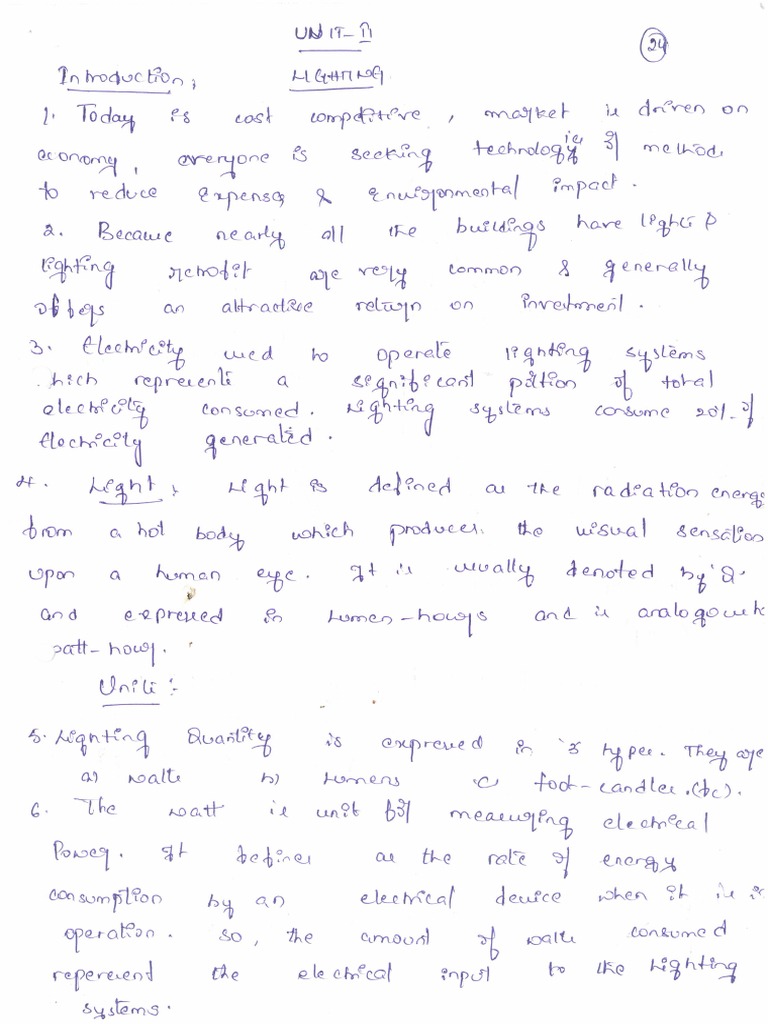 UNIT-II
24
Introduction; LIGHTING
1. Today is cost competitive, market is driven on
economy, everyone is seeking technologies or methods
to reduce expenses & Environmental impact.
2. Because nearly all the buildings have lights
lighting retrofit are very common & generally
offers an attractive return on investment.
3. Electricity used to operate lighting systems
hich represents a significant potion of total
electricity consumed. Lighting systems consume 20% of
Electricity generated.
4. Light; Light is defined as the radiation energy
from a hot body which produces the visual sensation
upon a human eye. It is usually denoted by 'Q'
and expressed in Lumen-hours and is analogous
watt-hour.
Units:-
5. Lighting Quantity is expressed in 3 types. They are
a) watts b) Lumens c) foot-candles.(fc).
6. The watt is unit for measuring electrical
Power. It defines as the rate of energy
consumption by an electrical device when it is
operation. so, the amount of watts consumed
reperesent the electrical input to the Lighting
systems.